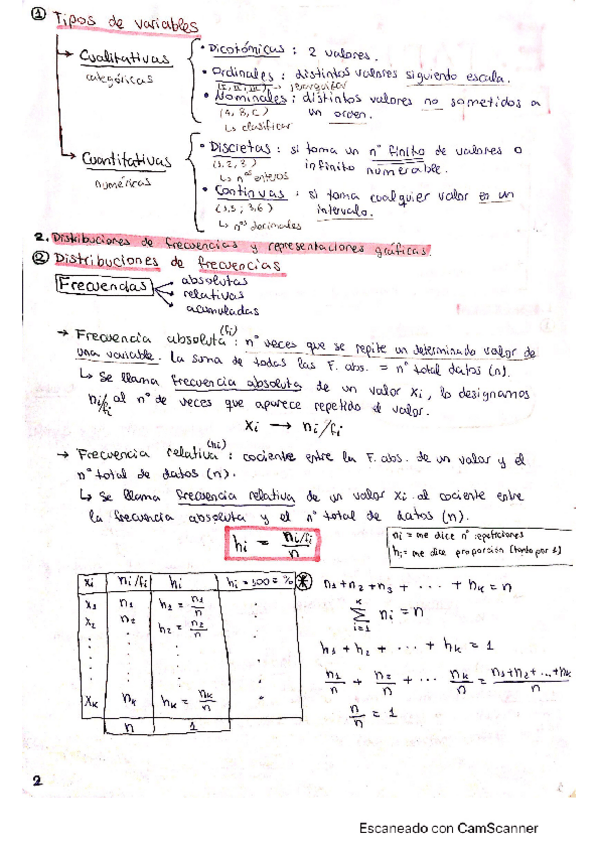 ① Tipos de variables
→ Cualitativas
categóricas
• Dicotómicas : 2 valores.
• Ordinales : distintos valores siguiendo escala.
(I, II, III) → jerarquizar
• Nominales : distintos valores no sometidos a
(A, B, C) un orden.
↳ clasificar
→ Cuantitativas
numéricas
• Discretas : si toma un nº finito de valores o
(1, 2, 3) infinito numerable.
↳ nºs enteros
• Continuas : si toma cualquier valor en un
(3,5 ; 3,6) intervalo.
↳ nºs decimales
2. Distribuciones de frecuencias y representaciones gráficas.
② Distribuciones de frecuencias
Frecuencias → absolutas
→ relativas
→ acumuladas
→ Frecuencia absoluta (fi) : nº veces que se repite un determinado valor de
una variable. La suma de todas las F. abs. = nº total datos (n).
↳ Se llama frecuencia absoluta de un valor Xi, lo designamos
ni/fi al nº de veces que aparece repetido el valor.
Xi → ni/fi
→ Frecuencia relativa (hi) : cociente entre la F. abs. de un valor y el
nº total de datos (n).
↳ Se llama frecuencia relativa de un valor Xi al cociente entre
la frecuencia absoluta y el nº total de datos (n).
hi = ni/fi / n
ni = me dice nº repeticiones
hi = me dice proporción (tanto por 1)
xi ni/fi hi hi = 100 = % ✱
x1 n1 h1 = n1/n
x2 n2 h2 = n2/n
xk nk hk = nk/n
n 1
n1 + n2 + n3 + ... + nk = n
k Σ i=1 ni = n
h1 + h2 + ... + hk = 1
n1/n + n2/n + ... nk/n = n1+n2+...+nk/n
n/n = 1
2
Escaneado con CamScanner